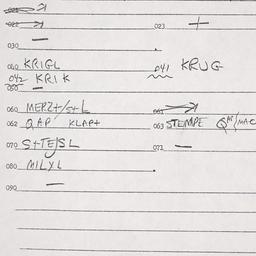 022
023 +
030 —
040 KRIGL 041 KRUG
042 KRIK
050 —
060 MERZ+/S+L 061
062 QAP KLAP+ 063 STEMPE
070 S+TE/SL 071 —
080 MILYL
090 —